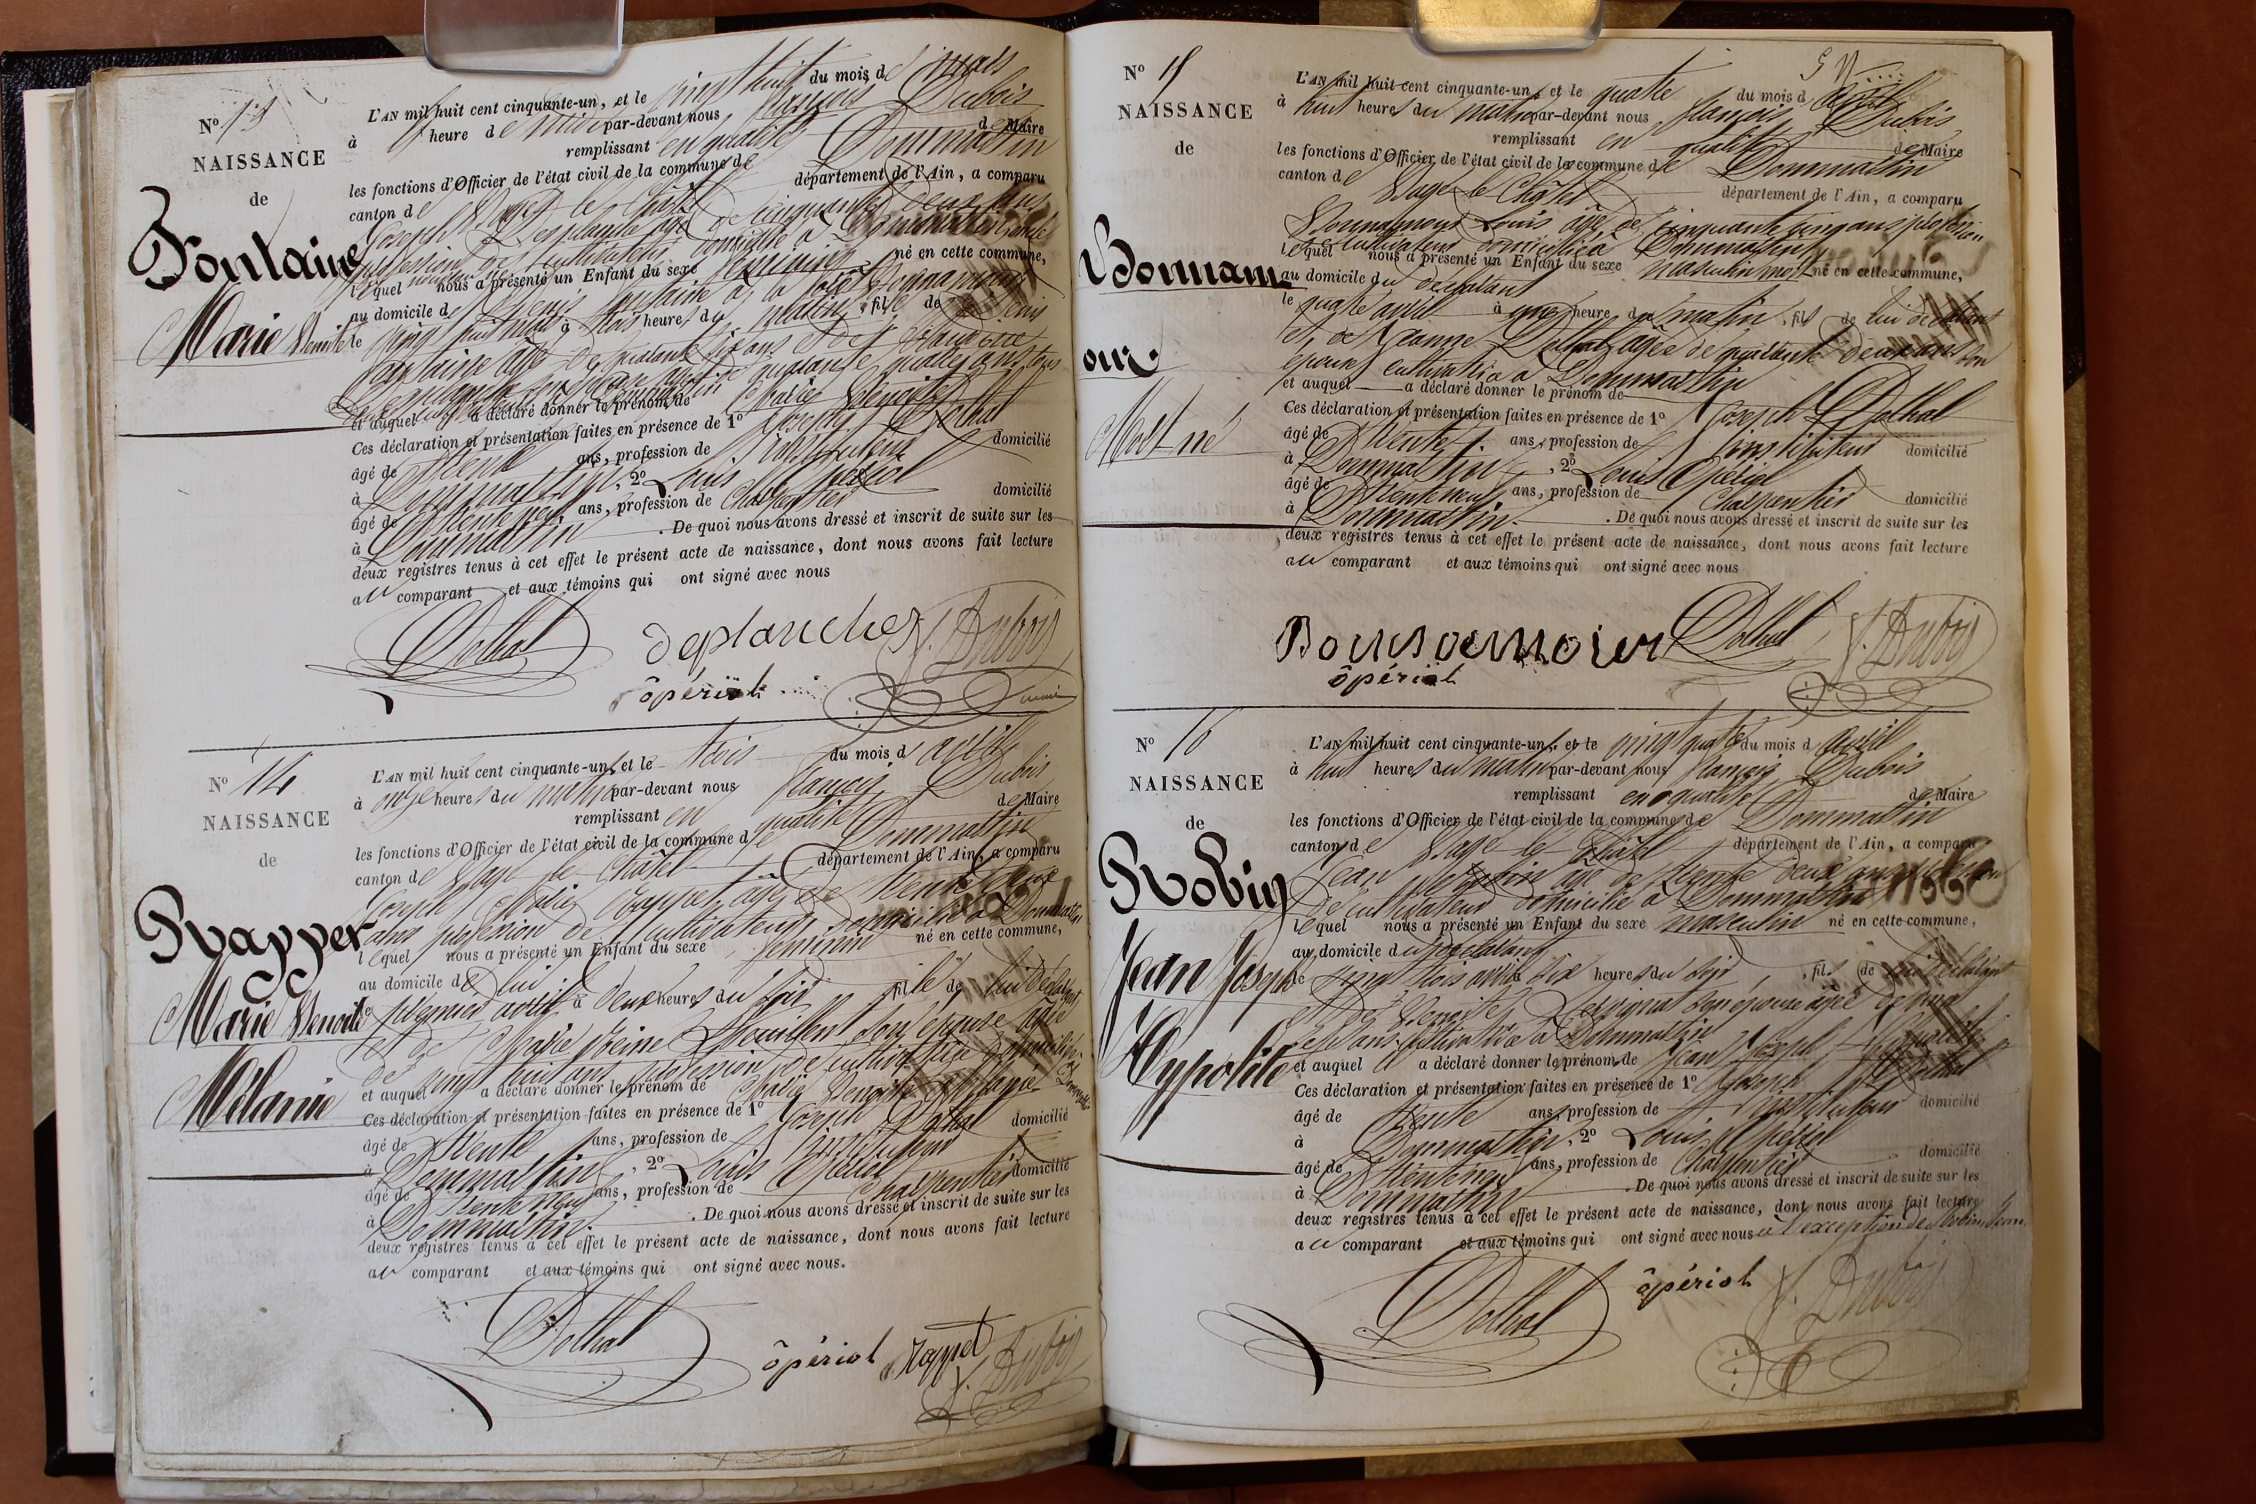 Nº 13
NAISSANCE
de
Fontaine
Marie Benoite
L'AN mil huit cent cinquante-un, et le vingt huit du mois de mars
à heure de par-devant nous François Dubois
remplissant en qualité de Maire
les fonctions d'Officier de l'état civil de la commune de Dommartin
canton de Bagé le Châtel département de l'Ain, a comparu
Joseph Desplanche âgé de cinquante deux ans
profession de cultivateur domicilié à Dommartin
lequel nous a présenté un Enfant du sexe féminin né en cette commune,
au domicile de Denis Fontaine à la
le vingt huit mars à trois heures du matin, fille de Denis
Fontaine âgé de quarante six ans et de Claudine
quarante quatre ans
et auquel a déclaré donner le prénom de Marie Benoite
Ces déclaration et présentation faites en présence de 1º Joseph Dothal
âgé de trente ans, profession de instituteur domicilié
à Dommartin, 2º Louis Opériol
âgé de trente neuf ans, profession de Charpentier domicilié
à Dommartin. De quoi nous avons dressé et inscrit de suite sur les
deux registres tenus à cet effet le présent acte de naissance, dont nous avons fait lecture
au comparant et aux témoins qui ont signé avec nous
Dothal deplanches f. Dubois
ôpériol maire
Nº 14
NAISSANCE
de
Rappet
Marie Benoite
Mélanie
L'AN mil huit cent cinquante-un, et le trois du mois d avril
à onze heures du matin par-devant nous François Dubois
remplissant en qualité de Maire
les fonctions d'Officier de l'état civil de la commune de Dommartin
canton de Bagé le Châtel département de l'Ain, a comparu
Joseph Marie Rappet âgé de trente deux
ans profession de cultivateur domicilié à Dommartin
lequel nous a présenté un Enfant du sexe féminin né en cette commune,
au domicile de lui
le premier avril à deux heures du soir fille de lui déclarant
et de Marie Reine son épouse âgée
de vingt huit ans profession de cultivatrice
et auquel a déclaré donner le prénom de Marie Benoite Mélanie
Ces déclaration et présentation faites en présence de 1º Joseph Dothal
âgé de trente ans, profession de instituteur domicilié
à Dommartin, 2º Louis Opériol
âgé de trente neuf ans, profession de charpentier domicilié
à Dommartin. De quoi nous avons dressé et inscrit de suite sur les
deux registres tenus à cet effet le présent acte de naissance, dont nous avons fait lecture
au comparant et aux témoins qui ont signé avec nous.
Dothal ôpériol Rappet f. Dubois
Nº 15
NAISSANCE
de
Bonnam
our
Mort né
L'AN mil huit cent cinquante-un, et le quatre du mois d avril
à huit heures du matin par-devant nous françois Dubois
remplissant en qualité de Maire
les fonctions d'Officier de l'état civil de la commune de Dommartin
canton de Bagé le Châtel département de l'Ain, a comparu
Bonnamour Louis âgé de cinquante cinq ans profession
de cultivateur domicilié à Dommartin
lequel nous a présenté un Enfant du sexe masculin mort né en cette commune,
au domicile du déclarant
le quatre avril à une heure du matin, fils de lui déclarant
et de Jeanne Dothal âgée de quarante deux ans son
épouse cultivatrice à Dommartin
et auquel a déclaré donner le prénom de
Ces déclaration et présentation faites en présence de 1º Joseph Dothal
âgé de trente ans, profession de instituteur domicilié
à Dommartin, 2º Louis Opériol
âgé de trente neuf ans, profession de Charpentier domicilié
à Dommartin. De quoi nous avons dressé et inscrit de suite sur les
deux registres tenus à cet effet le présent acte de naissance, dont nous avons fait lecture
au comparant et aux témoins qui ont signé avec nous
Dothal f. Dubois
ôpériol
Nº 16
NAISSANCE
de
Robin
Jean Joseph
Hyppolite
L'AN mil huit cent cinquante-un, et le vingt quatre du mois d avril
à huit heures du matin par-devant nous françois Dubois
remplissant en qualité de Maire
les fonctions d'Officier de l'état civil de la commune de Dommartin
canton de Bagé le Châtel département de l'Ain, a comparu
Jean Robin âgé de trente deux ans profession
de cultivateur domicilié à Dommartin
lequel nous a présenté un Enfant du sexe masculin né en cette commune,
au domicile du déclarant
le vingt trois avril à six heures du soir, fils de lui déclarant
et de Benoite son épouse âgée de vingt
sept ans cultivatrice à Dommartin
et auquel a déclaré donner le prénom de Jean Joseph hyppolite
Ces déclaration et présentation faites en présence de 1º Joseph Dothal
âgé de trente ans, profession de instituteur domicilié
à Dommartin, 2º Louis Opériol
âgé de trente neuf ans, profession de Charpentier domicilié
à Dommartin. De quoi nous avons dressé et inscrit de suite sur les
deux registres tenus à cet effet le présent acte de naissance, dont nous avons fait lecture
au comparant et aux témoins qui ont signé avec nous à l'exception de Robin Jean
Dothal ôpériol f. Dubois